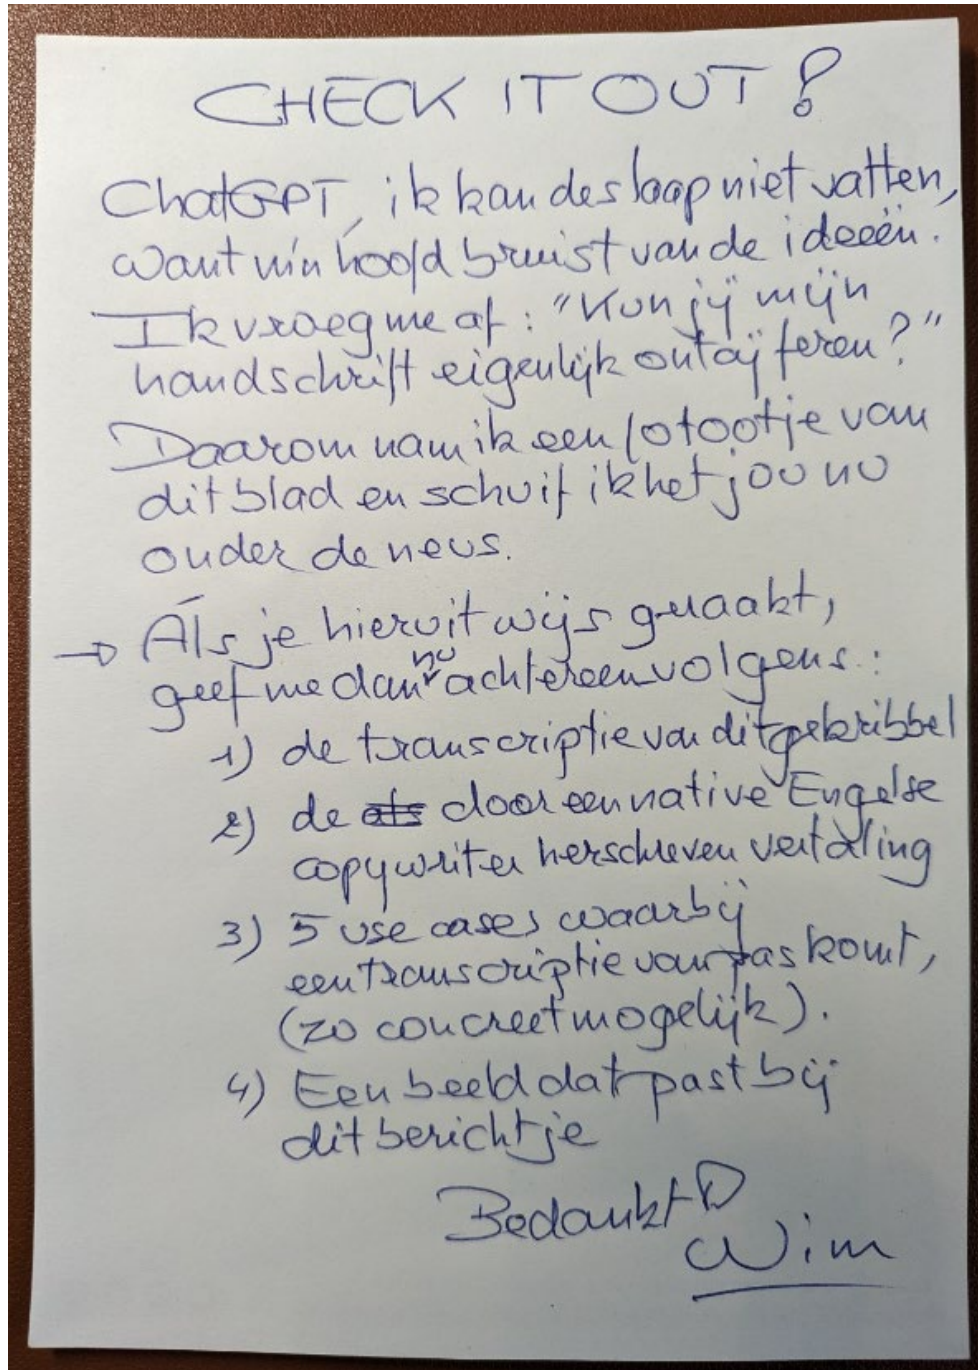 CHECK IT OUT!
ChatGPT, ik kan de slaap niet vatten,
want m'n hoofd bruist van de ideeën.
Ik vroeg me af: "Kun jij mijn
handschrift eigenlijk ontcijferen?"
Daarom nam ik een fotootje van
dit blad en schuif ik het jou nu
onder de neus.
→ Als je hieruit wijs geraakt,
geef me dan nu achtereenvolgens:
1) de transcriptie van dit gekribbel
2) de als door een native Engelse
copywriter herschreven vertaling
3) 5 use cases waarbij
een transcriptie van pas komt,
(zo concreet mogelijk).
4) Een beeld dat past bij
dit berichtje
Bedankt!
Wim